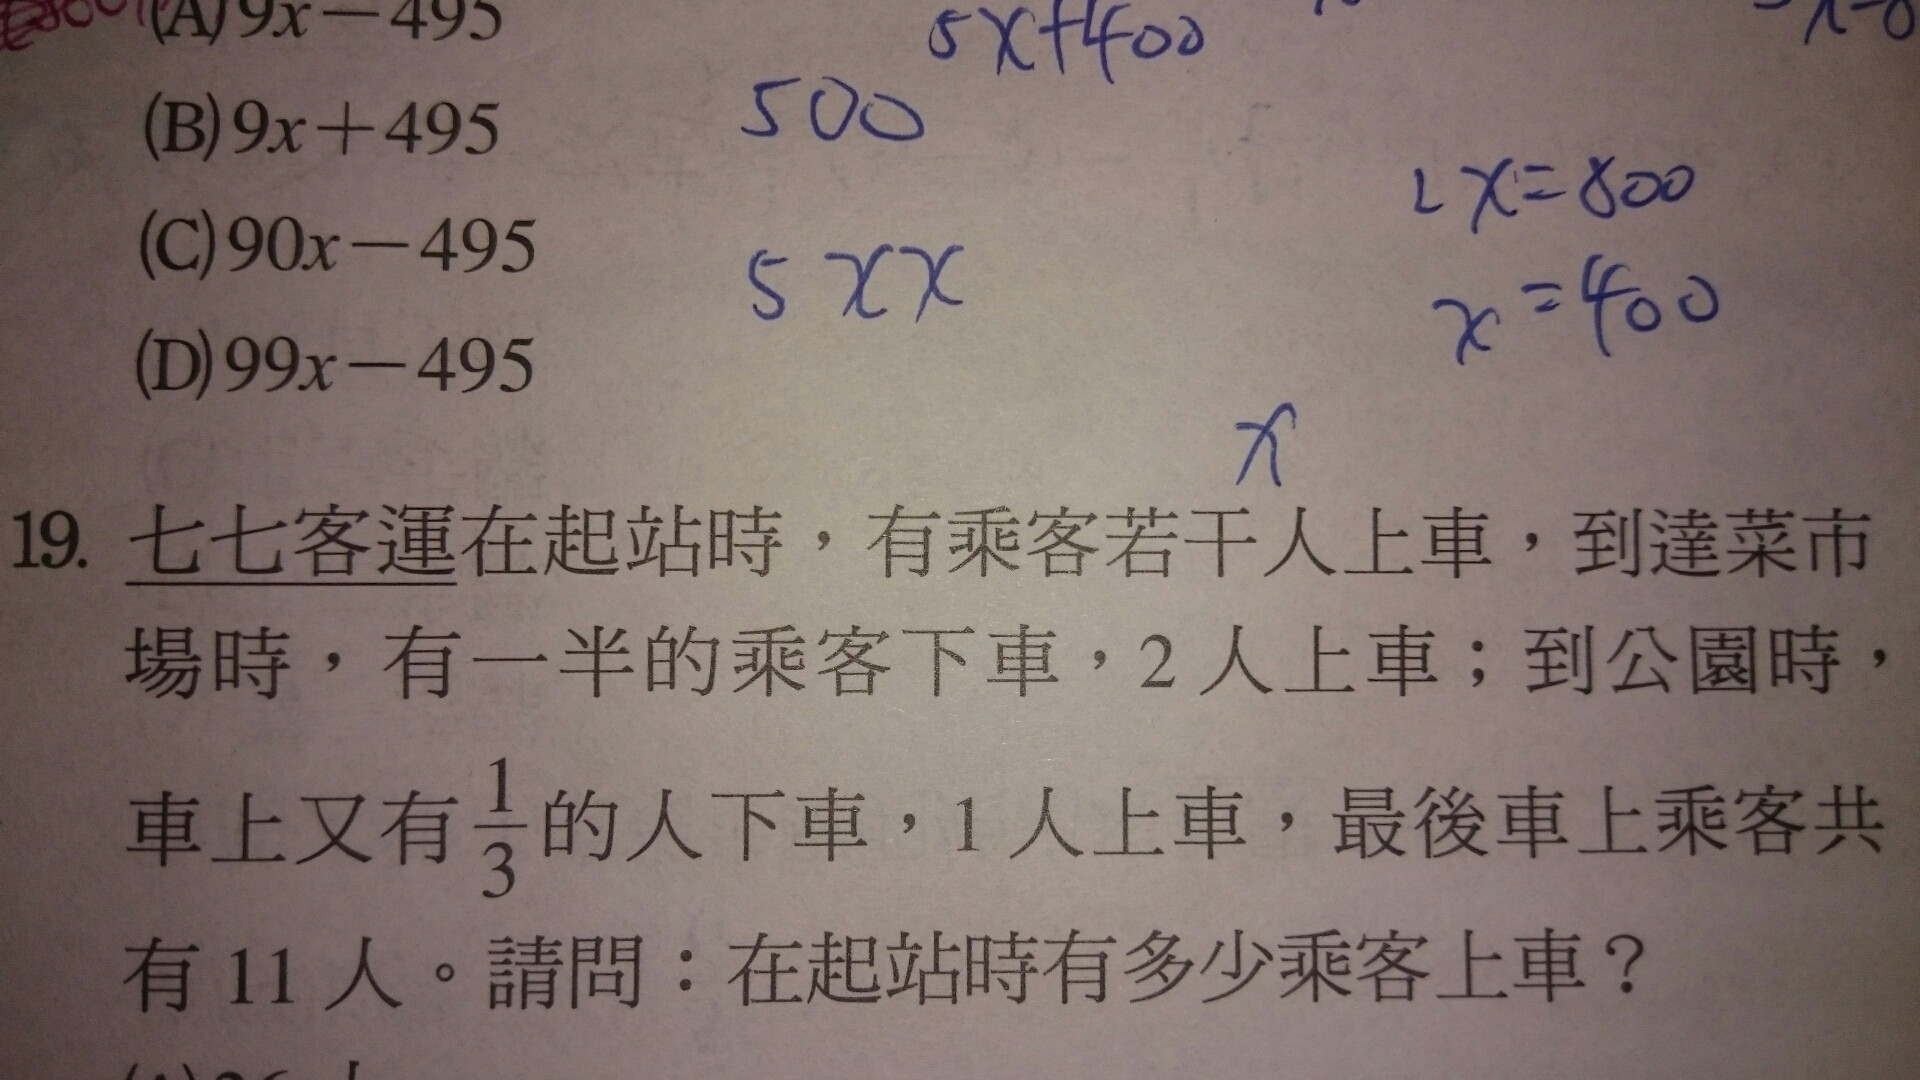 (A) 9x－495
5x+400
(B) 9x＋495
500
2x=800
(C) 90x－495
5xx
x=400
(D) 99x－495
x
19. 七七客運在起站時，有乘客若干人上車，到達菜市
場時，有一半的乘客下車，2 人上車；到公園時，
車上又有 1/3 的人下車，1 人上車，最後車上乘客共
有 11 人。請問：在起站時有多少乘客上車？